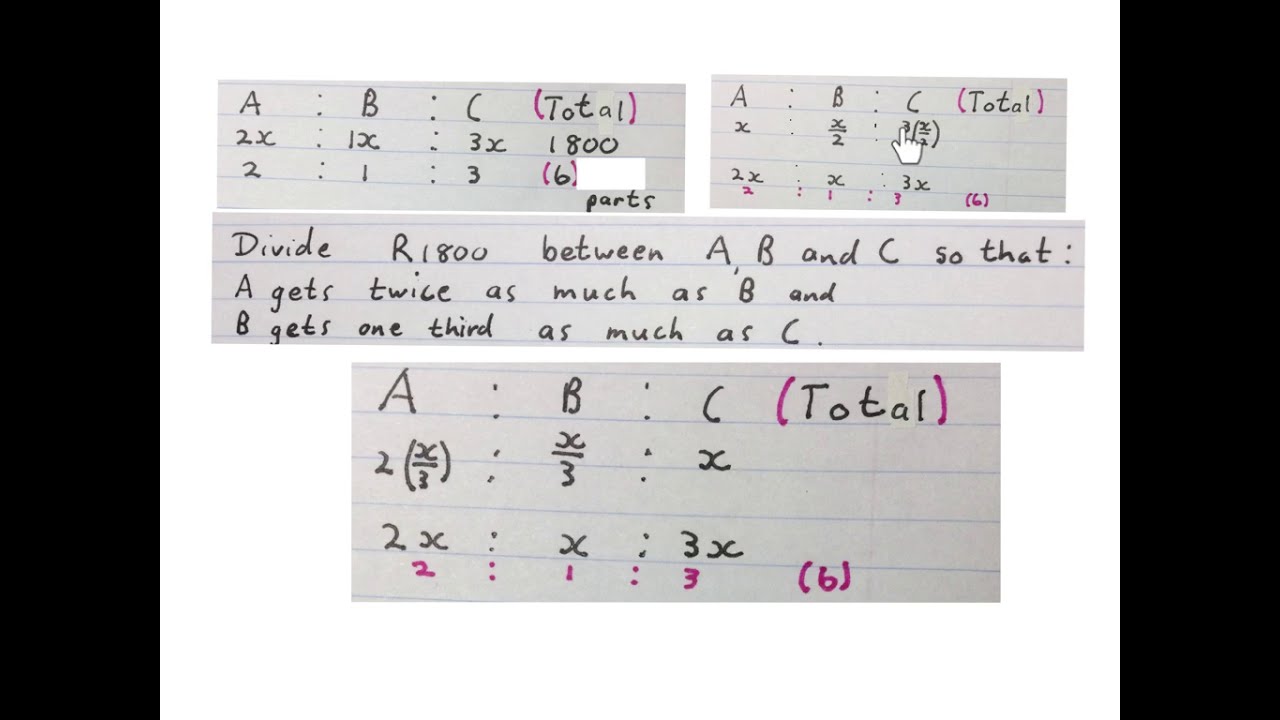 A : B : C (Total)
2x : 1x : 3x 1800
2 : 1 : 3 (6)
parts
A : B : C (Total)
x : x/2 : 3(x/2)
2x : x : 3x
2 : 1 : 3 (6)
Divide R1800 between A, B and C so that:
A gets twice as much as B and
B gets one third as much as C.
A : B : C (Total)
2(x/3) : x/3 : x
2x : x : 3x
2 : 1 : 3 (6)